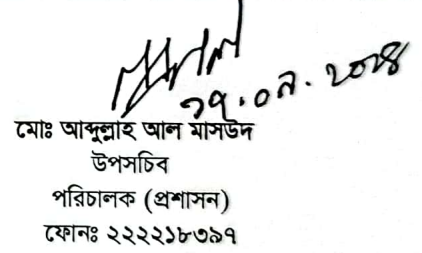 মোঃ আব্দুল্লাহ আল মাসউদ
উপসচিব
পরিচালক (প্রশাসন)
ফোনঃ ২২২২১৮৩৯৭